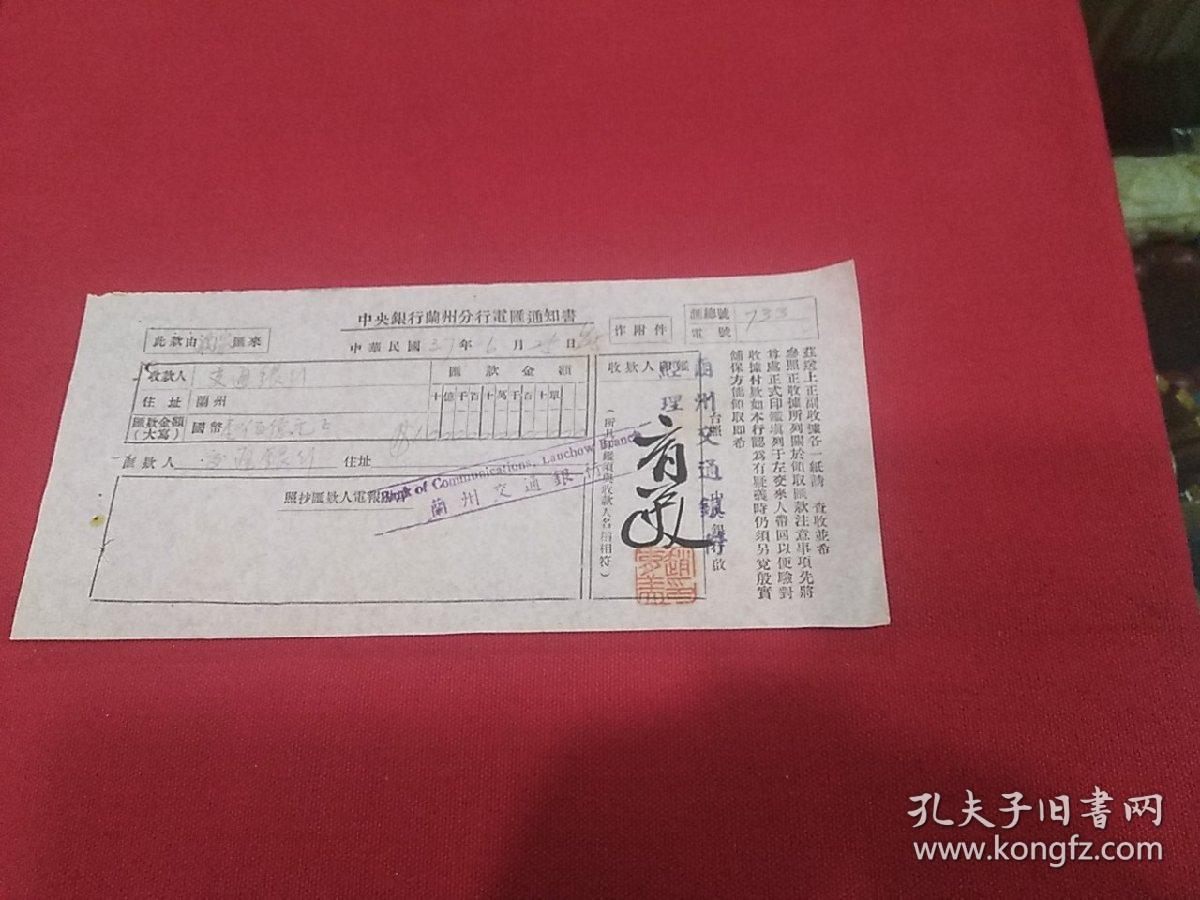 中央銀行蘭州分行電匯通知書
此款由 匯來
中華民國37年6月25日
作附件
匯總號
電號
733
收款人 交通銀行
匯款金額
十億千百十萬千百十單
住址 蘭州
匯款金額(大寫) 國幣
匯款人 交通銀行 住址
照抄匯款人電報
Bank of Communications, Lanchow Branch
蘭州交通銀行
收款人
經理
蘭州交通銀行
台照
啟
茲送上正副收據各一紙請 查收並希
參照正收據所列關於領取匯款注意事項先將
尊處正式印鑑填列于左交來人帶回以便驗對
收據付款如本行認為有疑義時仍須另覓殷實
舖保方能領取即希
孔夫子旧书网
www.kongfz.com